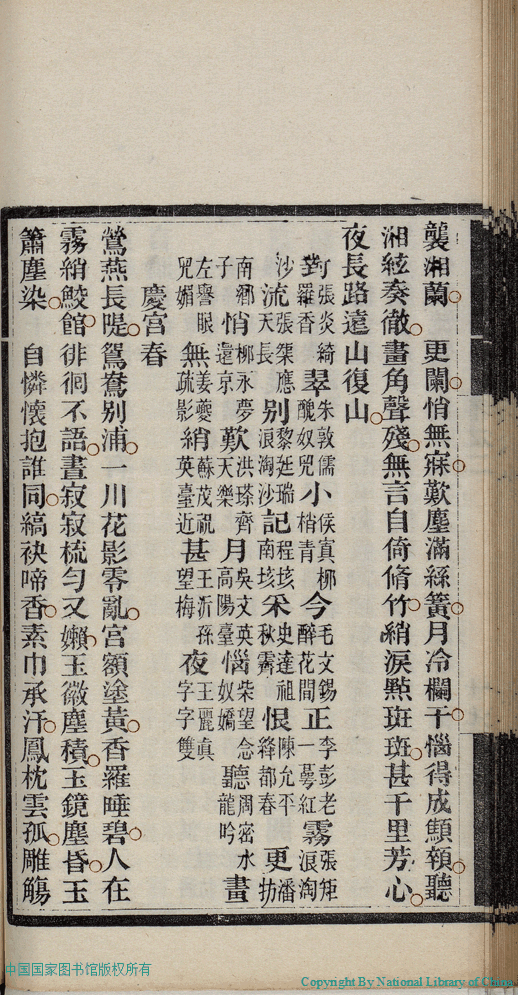 襲湘蘭　更闌悄無寐歎塵滿絲簧月冷欄干惱得成顦顇聽
湘絃奏徹畫角聲殘無言自倚脩竹綃淚㸃斑斑甚千里芳心
夜長路遠山復山
對張炎綺羅香翠朱敦儒醜奴兒小侯寘柳梢青今毛文錫醉花間正李彭老一萼紅霧張矩浪淘
沙流張榘應天長别黎廷瑞浪淘沙記程垓南垓采史達祖秋霽恨陳允平絳都春更潘枋
南鄉子悄柳永夢還京歎洪瑹齊天樂月吳文英高陽臺惱柴望念奴嬌聽周密水龍吟畫
左譽眼兒媚無姜夔疏影綃蘇茂祝英臺近甚王沂孫望梅夜王麗真字字雙
慶宮春
鶯燕長隄鴛鴦别浦一川花影零亂宮額塗黃香羅唾碧人在
霧綃鮫館徘徊不語晝寂寂梳勻又嬾玉徽塵積玉鏡塵昏玉
簫塵染　自憐懷抱誰同縞袂啼香素巾承汗鳳枕雲孤雕觴
中国国家图书馆版权所有
Copyright By National Library of China